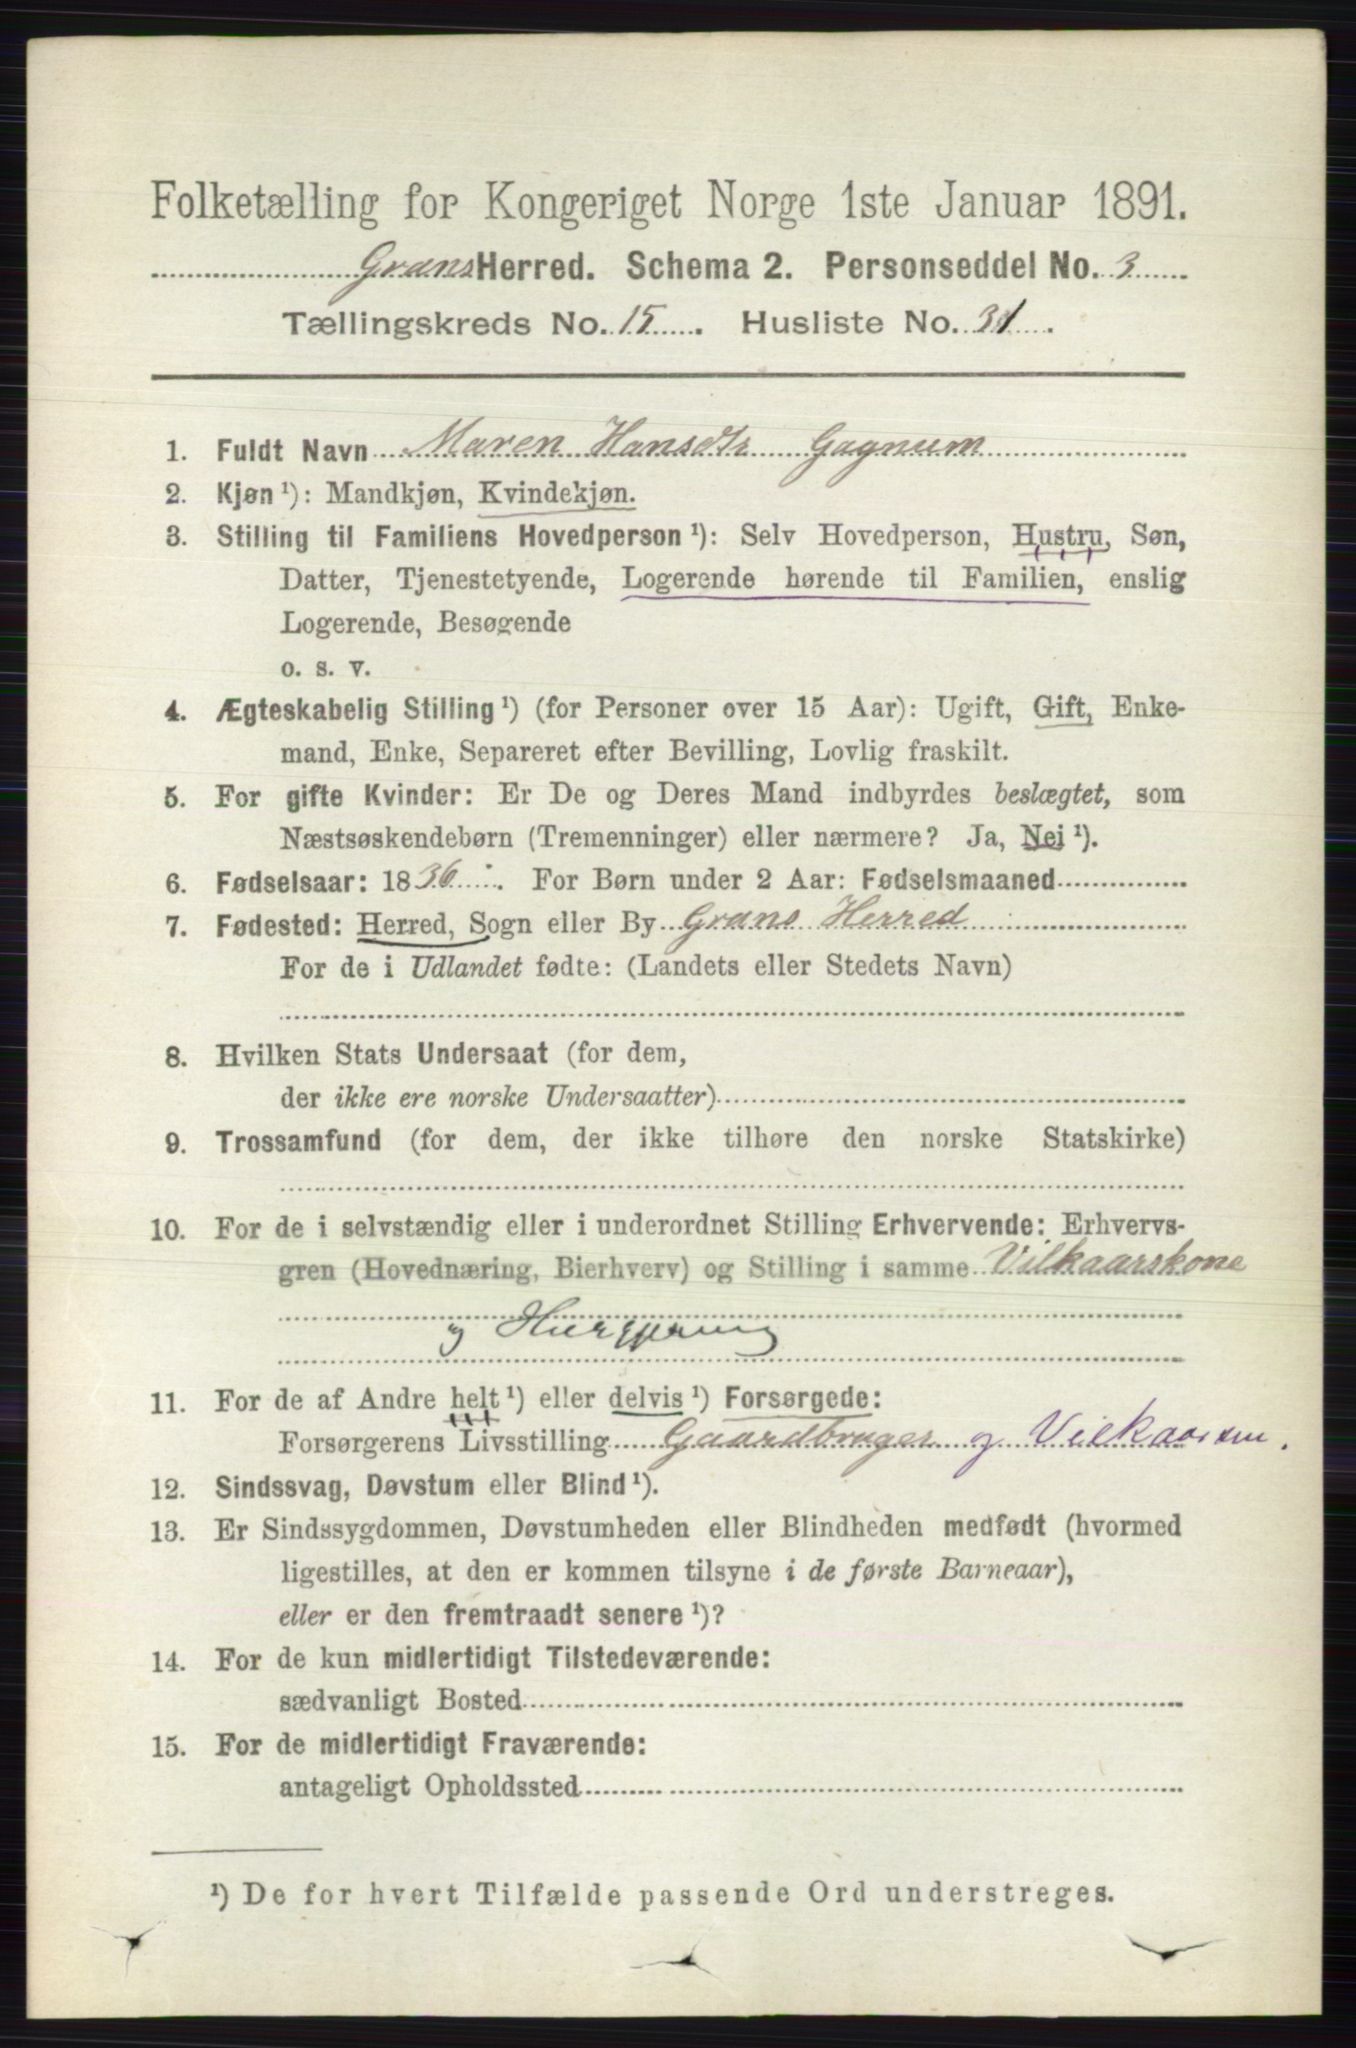 Folketælling for Kongeriget Norge 1ste Januar 1891.
Grans Herred. Schema 2. Personseddel No. 3
Tællingskreds No. 15. Husliste No. 31.
1. Fuldt Navn Maren Hansdtr Gagnum
2. Kjøn ¹): Mandkjøn, Kvindekjøn.
3. Stilling til Familiens Hovedperson ¹): Selv Hovedperson, Hustru, Søn,
Datter, Tjenestetyende, Logerende hørende til Familien, enslig
Logerende, Besøgende
o. s. v.
4. Ægteskabelig Stilling ¹) (for Personer over 15 Aar): Ugift, Gift, Enke-
mand, Enke, Separeret efter Bevilling, Lovlig fraskilt.
5. For gifte Kvinder: Er De og Deres Mand indbyrdes beslægtet, som
Næstsøskendebørn (Tremenninger) eller nærmere? Ja, Nei ¹).
6. Fødselsaar: 1836. For Børn under 2 Aar: Fødselsmaaned
7. Fødested: Herred, Sogn eller By Grans Herred
For de i Udlandet fødte: (Landets eller Stedets Navn)
8. Hvilken Stats Undersaat (for dem,
der ikke ere norske Undersaatter)
9. Trossamfund (for dem, der ikke tilhøre den norske Statskirke)
10. For de i selvstændig eller i underordnet Stilling Erhvervende: Erhvervs-
gren (Hovednæring, Bierhverv) og Stilling i samme Vilkaarskone
og Husgjerning
11. For de af Andre helt ¹) eller delvis ¹) Forsørgede:
Forsørgerens Livsstilling Gaardbruger og
12. Sindssvag, Døvstum eller Blind ¹).
13. Er Sindssygdommen, Døvstumheden eller Blindheden medfødt (hvormed
ligestilles, at den er kommen tilsyne i de første Barneaar),
eller er den fremtraadt senere ¹)?
14. For de kun midlertidigt Tilstedeværende:
sædvanligt Bosted
15. For de midlertidigt Fraværende:
antageligt Opholdssted
¹) De for hvert Tilfælde passende Ord understreges.